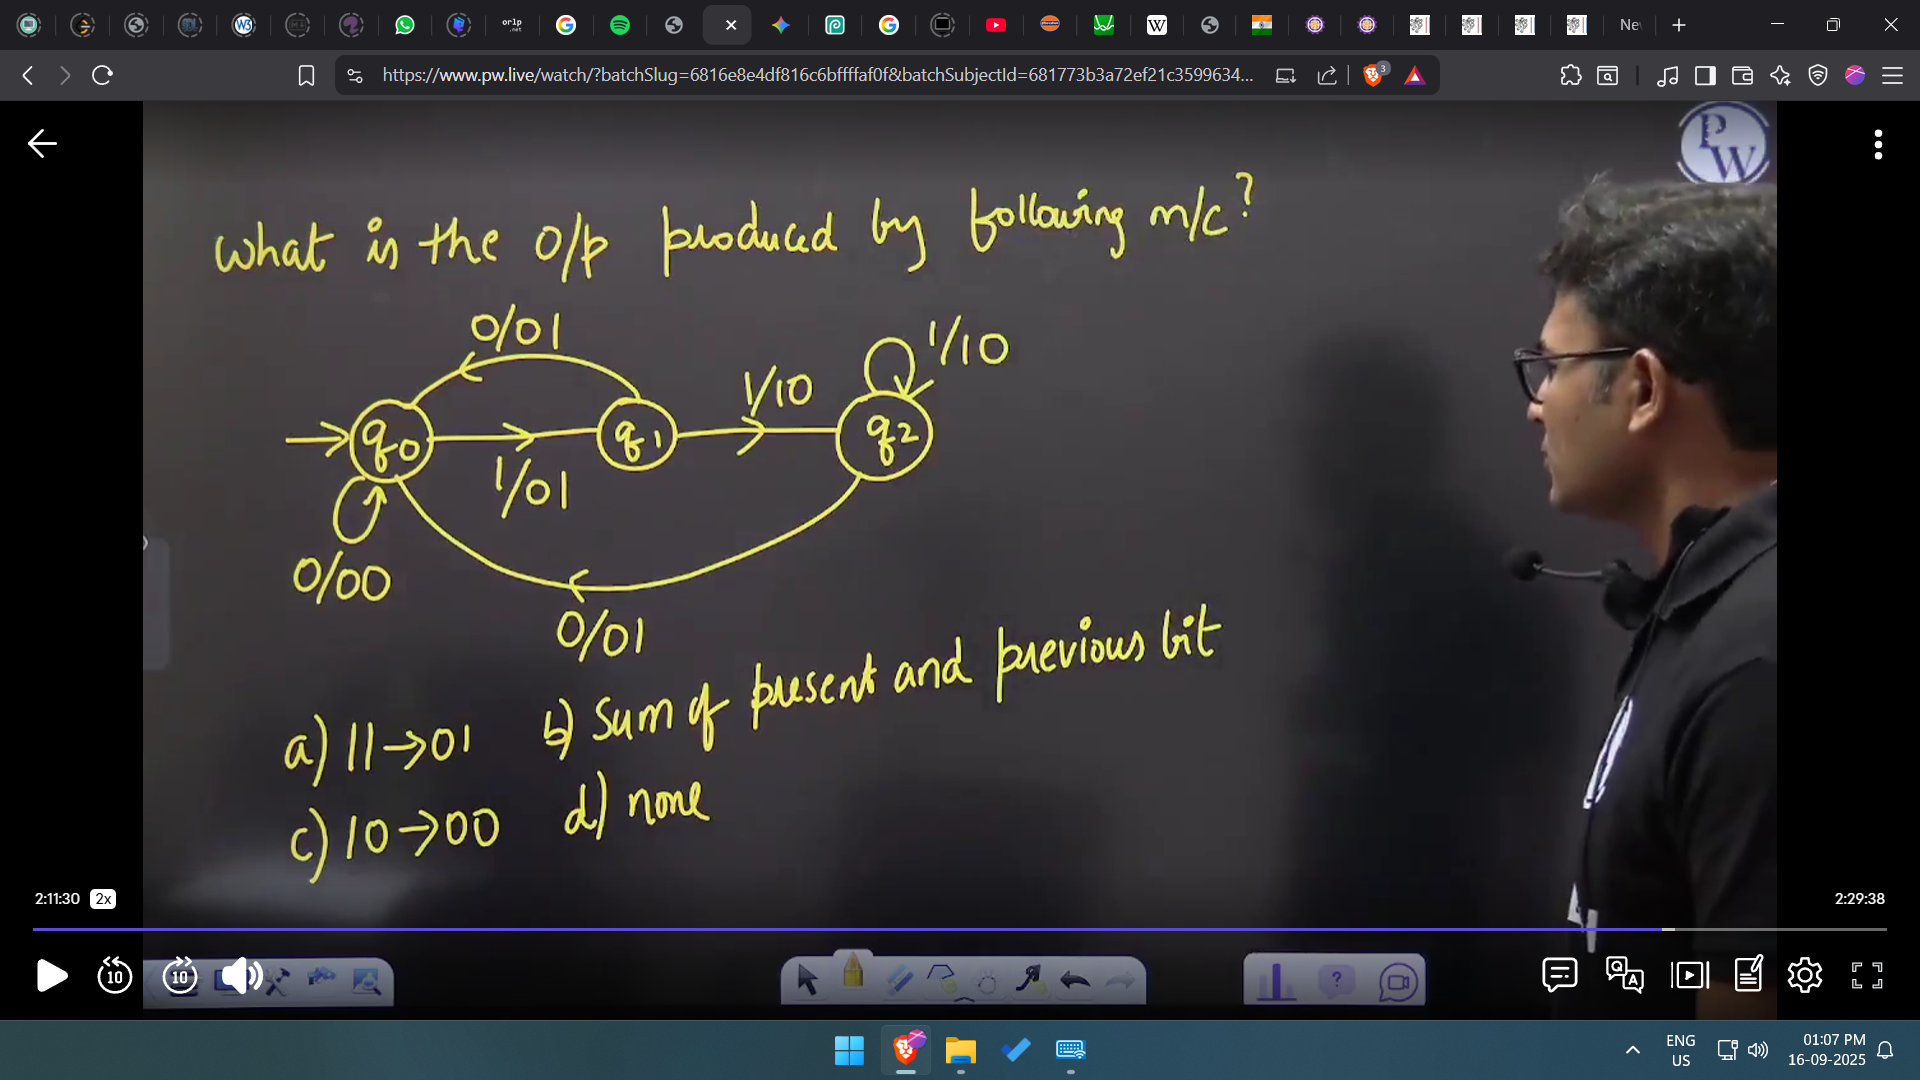 orlp
.net
W3
W
Ne
https://www.pw.live/watch/?batchSlug=6816e8e4df816c6bffffaf0f&batchSubjectId=681773b3a72ef21c3599634...
3
PW
What is the O/p produced by following m/c?
0/01
1/10
1/10
q0
q1
q2
1/01
0/00
0/01
a) 11→01 b) Sum of present and previous bit
c) 10→00 d) none
2:11:30 2x
2:29:38
10
10
Q A
ENG
US
01:07 PM
16-09-2025